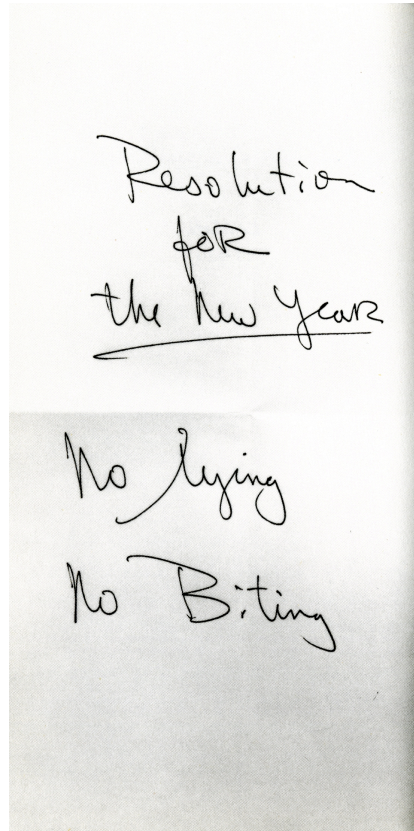 Resolution
for
the New Year
No lying
No Biting